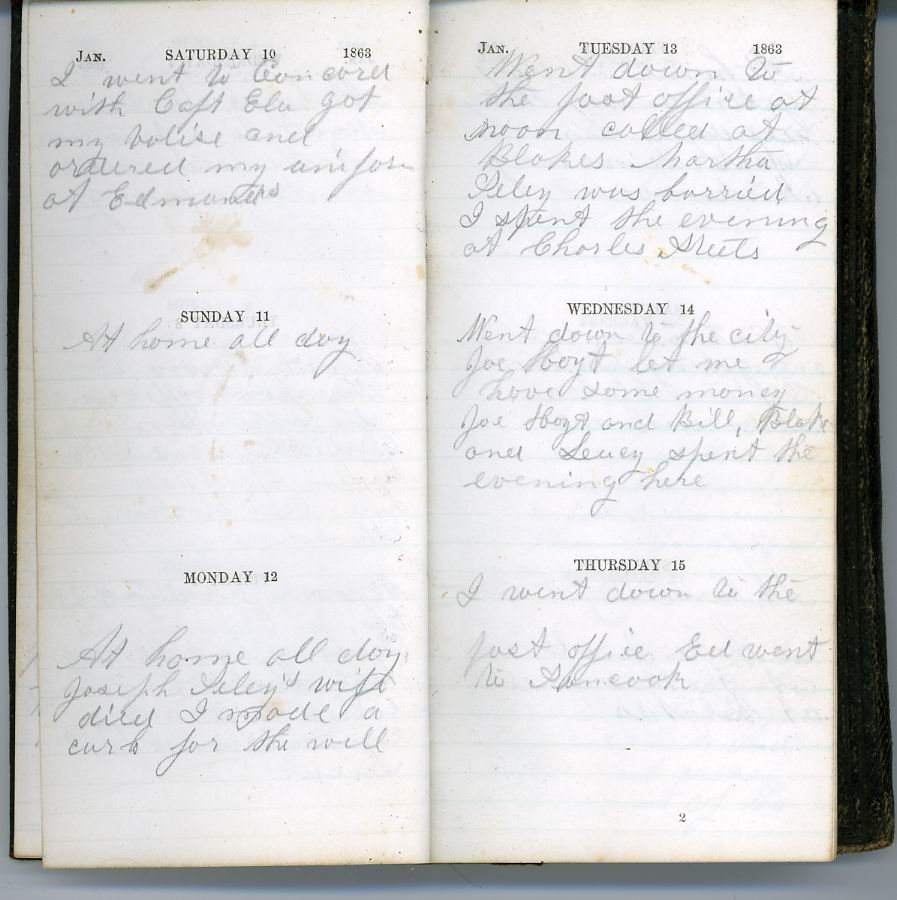 JAN. SATURDAY 10 1863
I went to Concord
with Capt Ela got
my valise and
ordered my uniform
at Edmunds
SUNDAY 11
At home all day
MONDAY 12
At home all day
Joseph Seley's wife
died I made a
curb for the well
JAN. TUESDAY 13 1863
Went down to
the post office at
noon called at
Blakes Martha
Seley was burried
I spent the evening
at Charles
WEDNESDAY 14
Went down to the city
Joe Hoyt let me
have some money
Joe Hoyt and Bill, Blake
and Lucy spent the
evening here
THURSDAY 15
I went down to the
post office Ed went
to Suncook
2